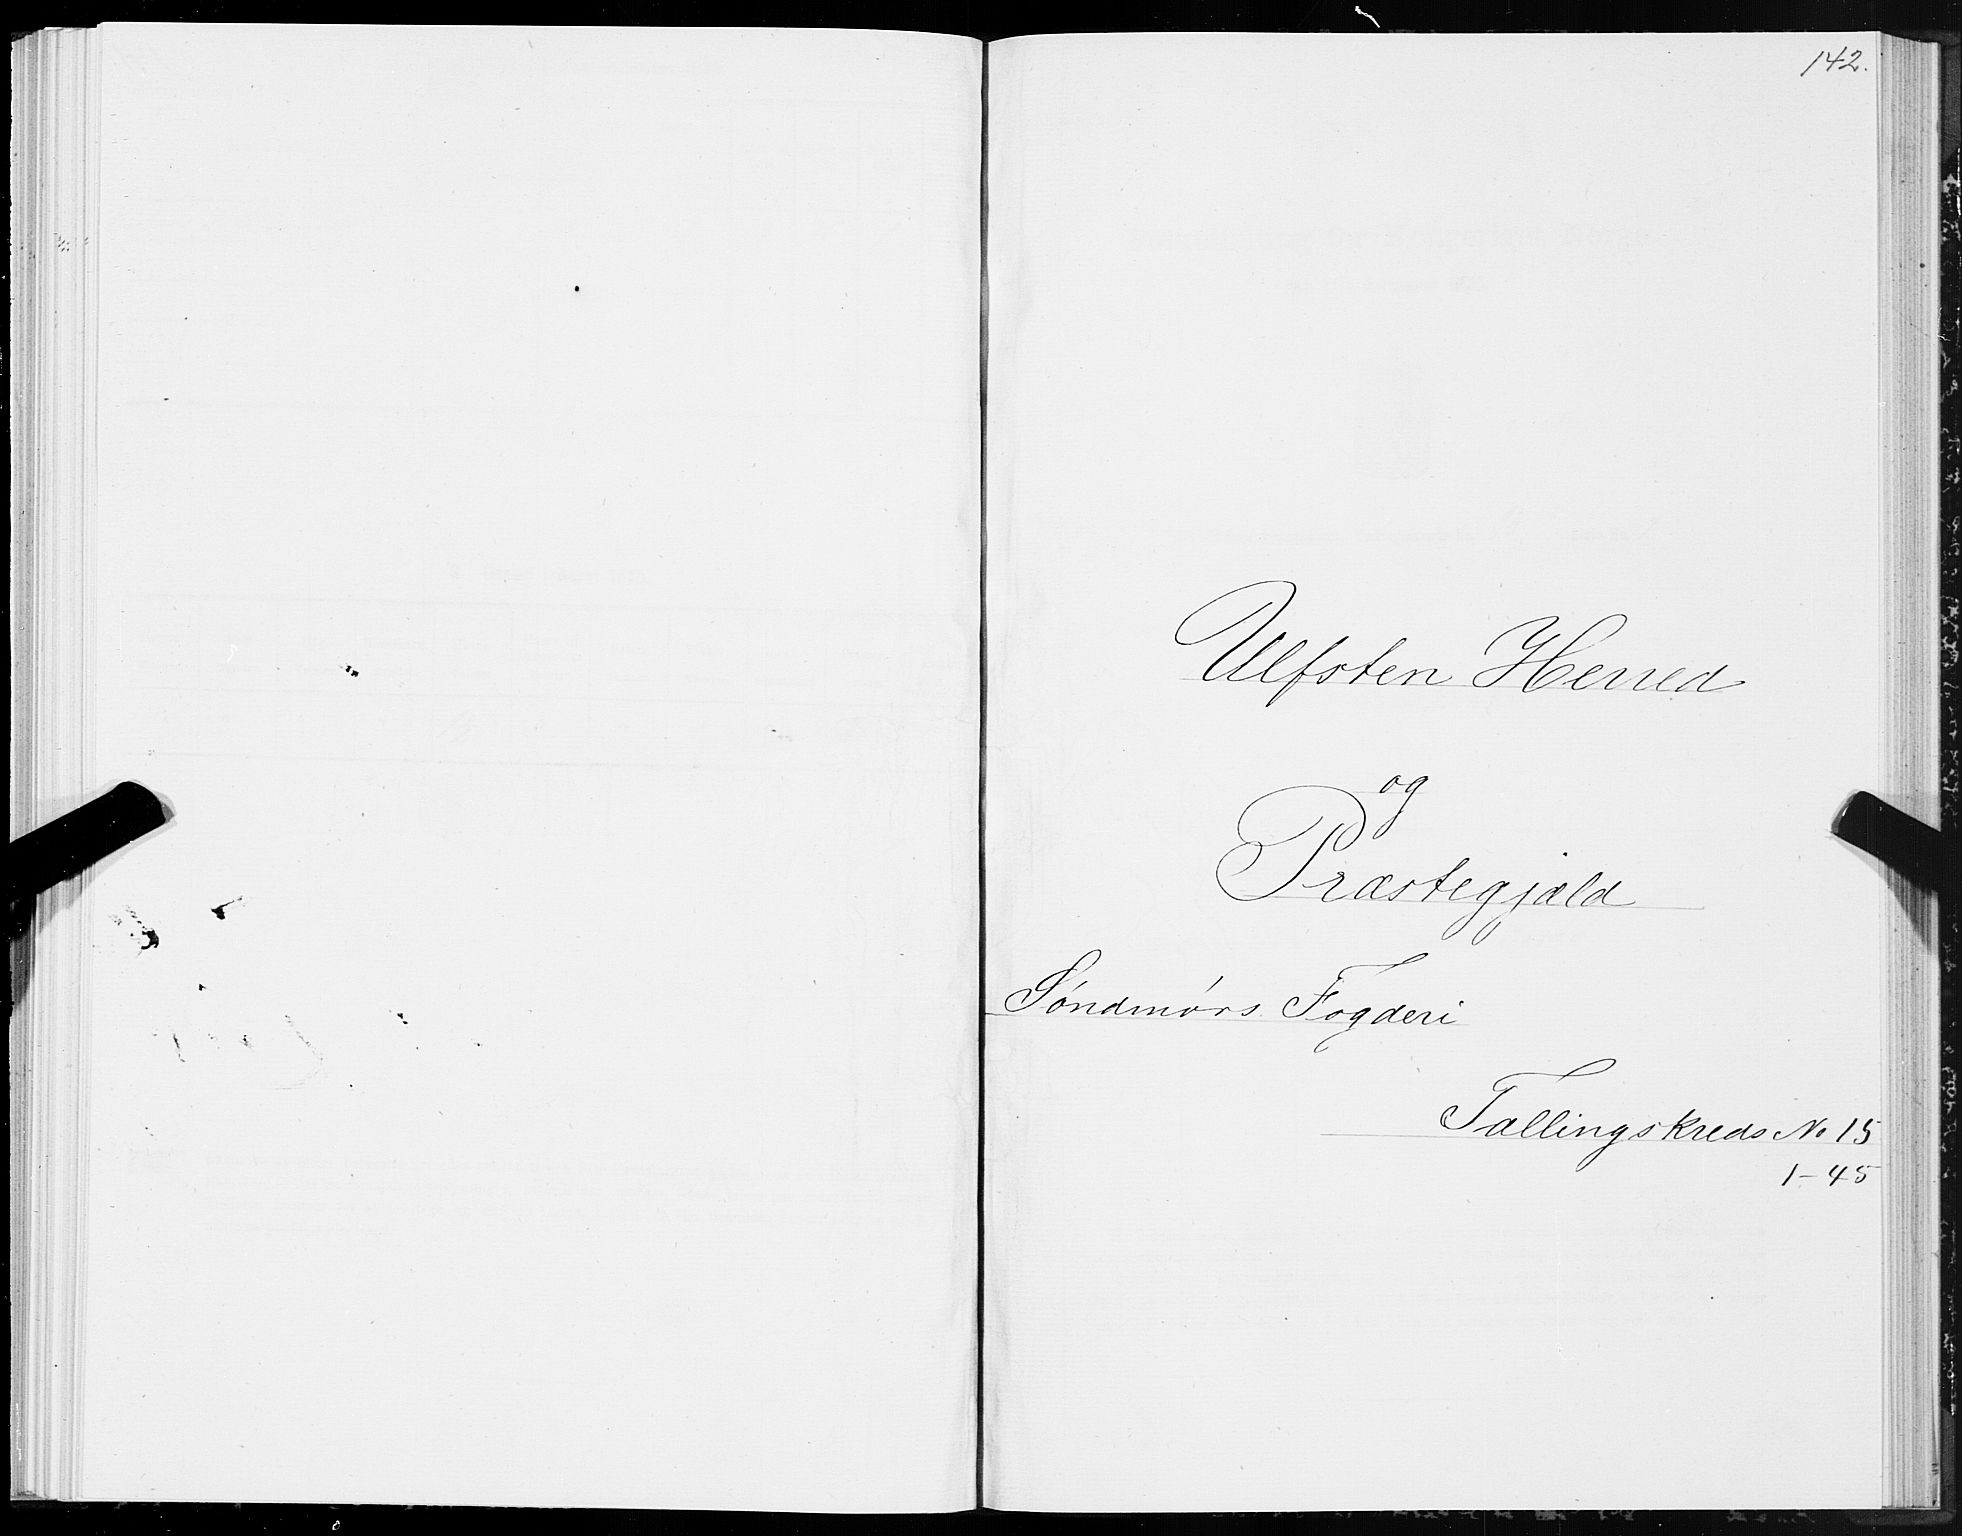 142.
Ulfsten Herred
og
Præstegjæld
Søndmørs Fogderi
Tællingskreds No 15
1-45